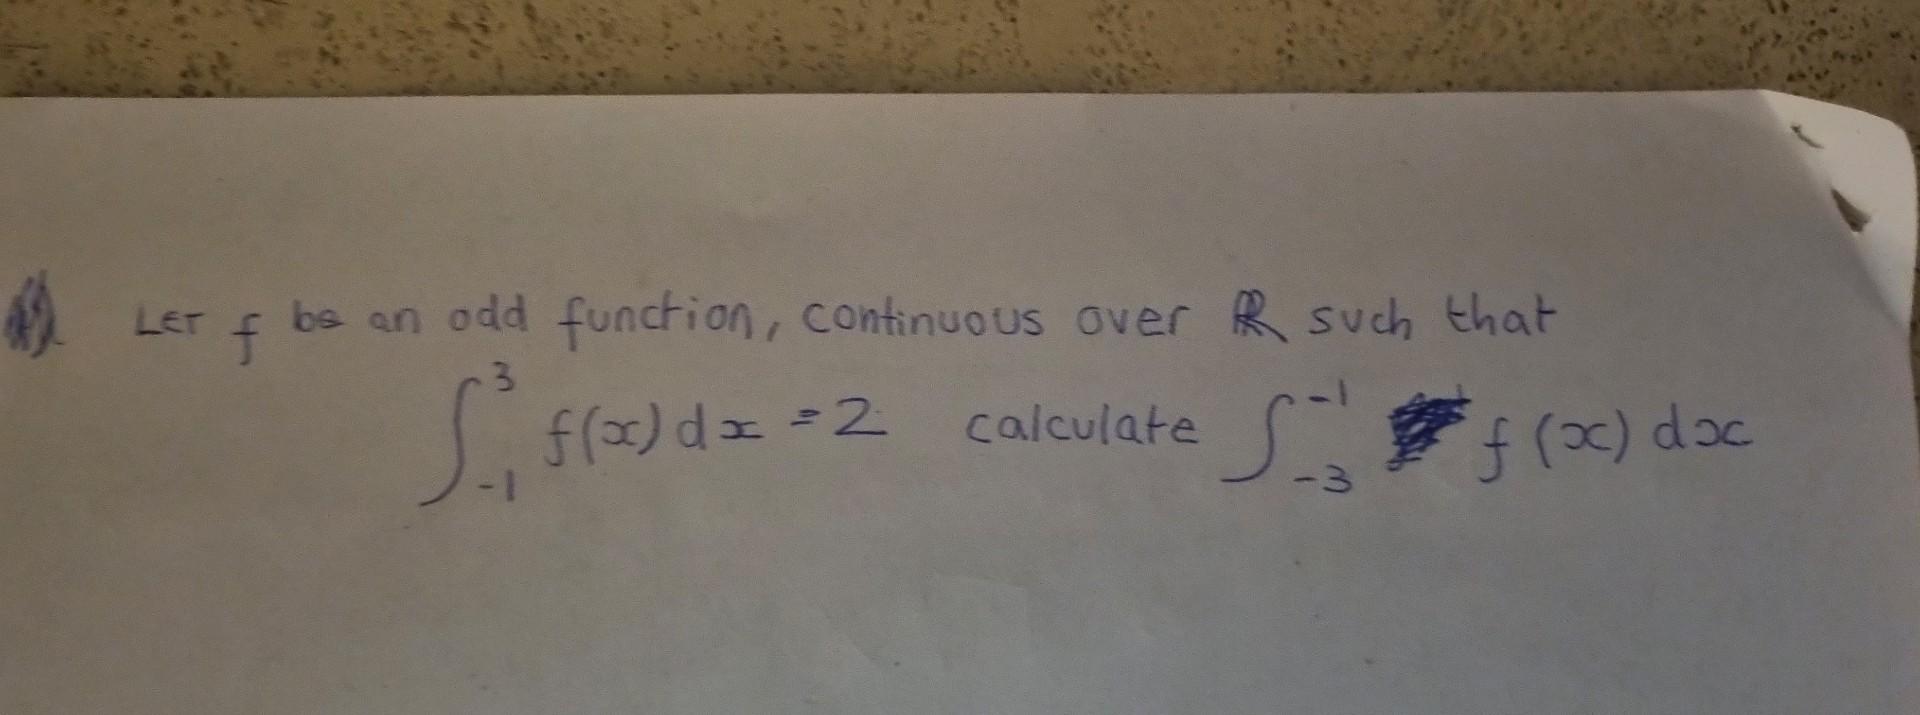 LET f be an odd function, continuous over ℝ such that
∫₋₁³ f(x) dx = 2 calculate ∫₋₃⁻¹ f(x) dx